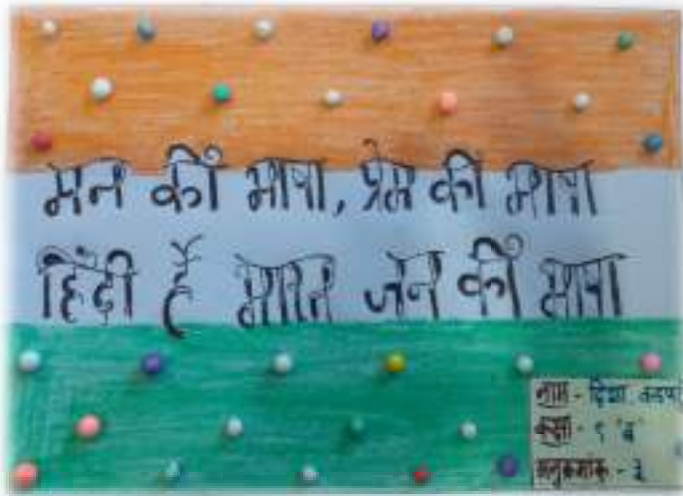 मन की भाषा, प्रेम की भाषा
हिंदी है भारत जन की भाषा
नाम - दिशा
कक्षा - ९ "ब"
अनुक्रमांक - ३